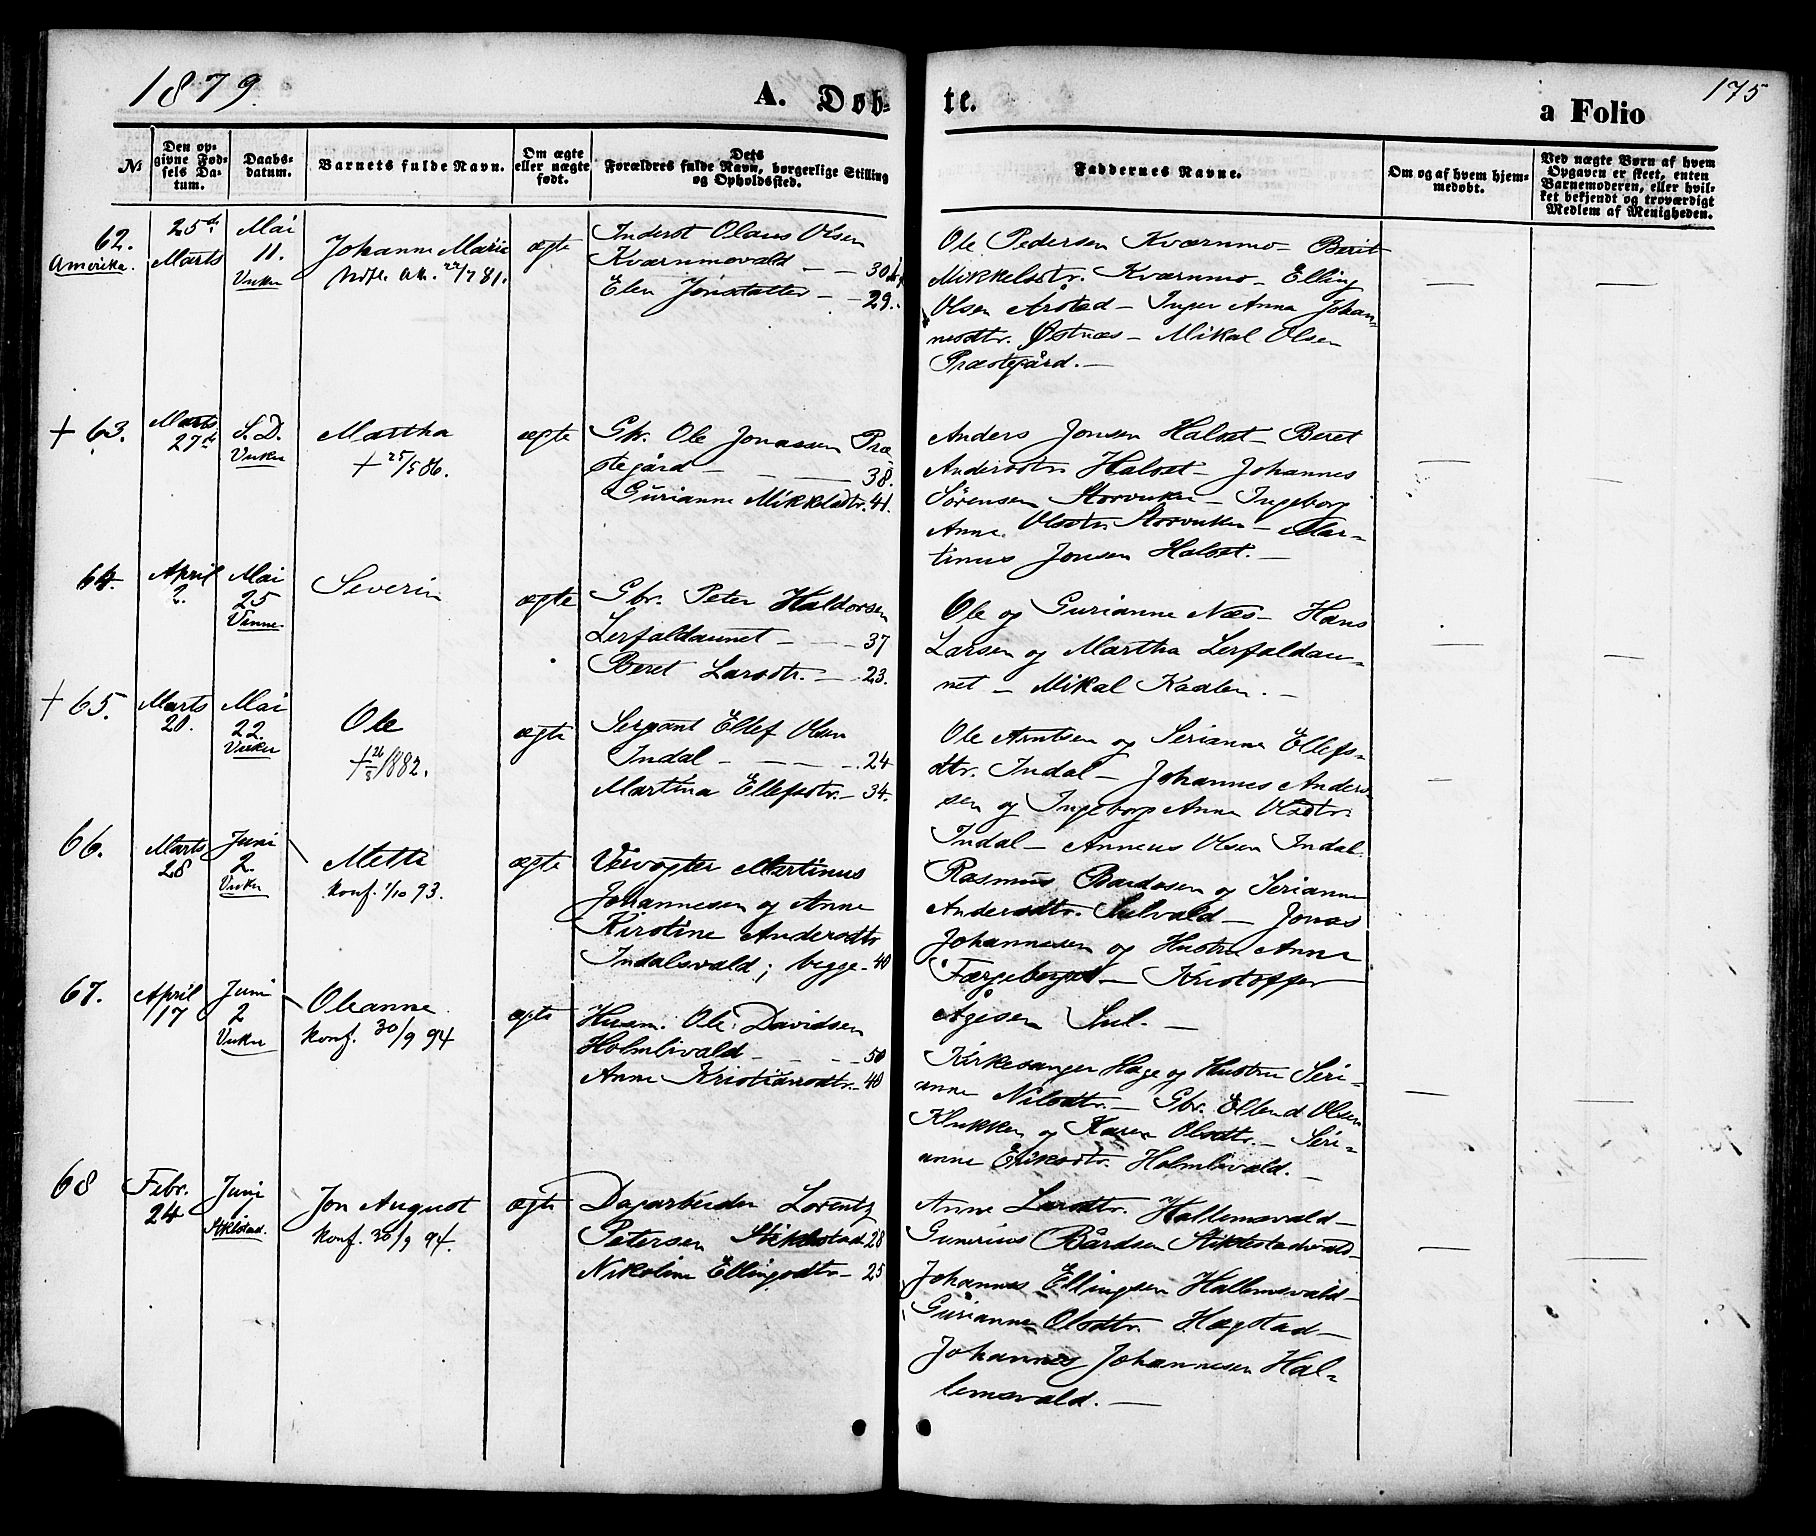 1879.
A. Døb-
te.
a Folio
175
№
Den op-
givne Fød-
sels Da-
tum.
Daabs-
datum.
Barnets fulde Navn.
Om ægte
eller uægte
født.
Dets
Forældres fulde Navn, borgerlige Stilling
og Opholdssted.
Faddernes Navne.
Om og af hvem hjem-
medøbt.
Ved uægte Børn af hvem
Opgaven er skeet, enten
Barnemoderen, eller hvil-
ket bekjendt og troværdigt
Medlem af Menigheden.
62.
Amerika.
25de
Marts
Mai
11.
Vuku
Johanne Marie
22/7 81.
ægte
Inderst Olaus Olsen
Kværnmovald - - 30
Elen Jonsdatter - - 29.
Ole Pedersen Kværnmo - Berit
Mikkelsdtr. Kværnmo - Elling
Olsen Årstad - Inger Anna Johan-
nesdtr. Østnæs - Mikal Olsen
Præstegård. -
+ 63.
Marts
27de
S. D.
Vuku
Martha
+ 25/5 86.
ægte
Gbr. Ole Jonassen Præ-
stegård - - 38.
Gurianne Mikkelsdtr. 41.
Anders Jonsen Halset - Beret
Andersdtr. Halset - Johannes
Sørensen Storvuku - Ingeborg
Anne Olsdtr. Storvuku - Mar-
tinus Jonsen Halset. -
64.
April
2.
Mai
25
Vinne
Severin
ægte
Gbr. Peter Haldorsen
Lerfaldaunet - - 37
Beret Larsdtr. - 23.
Ole og Gurianne Næs - Hans
Larsen og Martha Lerfaldau-
net - Mikal Kaalen. -
+ 65.
Marts
20.
Mai
22.
Vuku
Ole
+ 26/3 1882.
ægte
Sergant Ellef Olsen
Indal - - - 24
Martina Ellefsdtr. - 34.
Ole Arntsen og Serianna Ellefs-
dtr. Indal - Johannes Anders-
sen og Ingeborg Anna Olsdtr.
Indal - Anneus Olsen Indal.
66.
Marts
28
Juni
2.
Vuku
Mette
konf. 1/10 93.
ægte
Veivogter Martinus
Johannesen og Anne
Kirstine Andersdtr
Indalsvald; begge - 40
Rasmus Bardosen og Serianna
Andersdtr. Sulvald - Jonas
Johannesen og Hustru Anna
Færgeberget - Kristoffer
Ågesen Sul. -
67.
April
17
Juni
2
Vuku
Oleanne
konf. 30/9 94
ægte
Husm. Ole Davidsen
Holmlivald - - - 50
Anne Kristiansdtr. - 40
Kirkesanger Hage og Hustru Seri-
anne Nilsdtr. - Gbr. Ellend Olsen
Klukken og Karen Olsdtr. - Seri-
anne Eriksdtr. Holmlivald. -
68
Febr.
24
Juni
1
Stiklestad.
Jon August
konf. 30/9 94.
ægte
Dagarbeider Lorentz
Petersen Stiklestad 28
Nikoline Ellingsdtr - 25
Anne Larsdtr. Hallemsvald -
Gunerius Bårdsen Stiklestadvald -
Johannes Ellingsen Hallemsvald -
Gurianna Olsdtr. Hægstad -
Johannes Johannesen Hal-
lemsvald. -